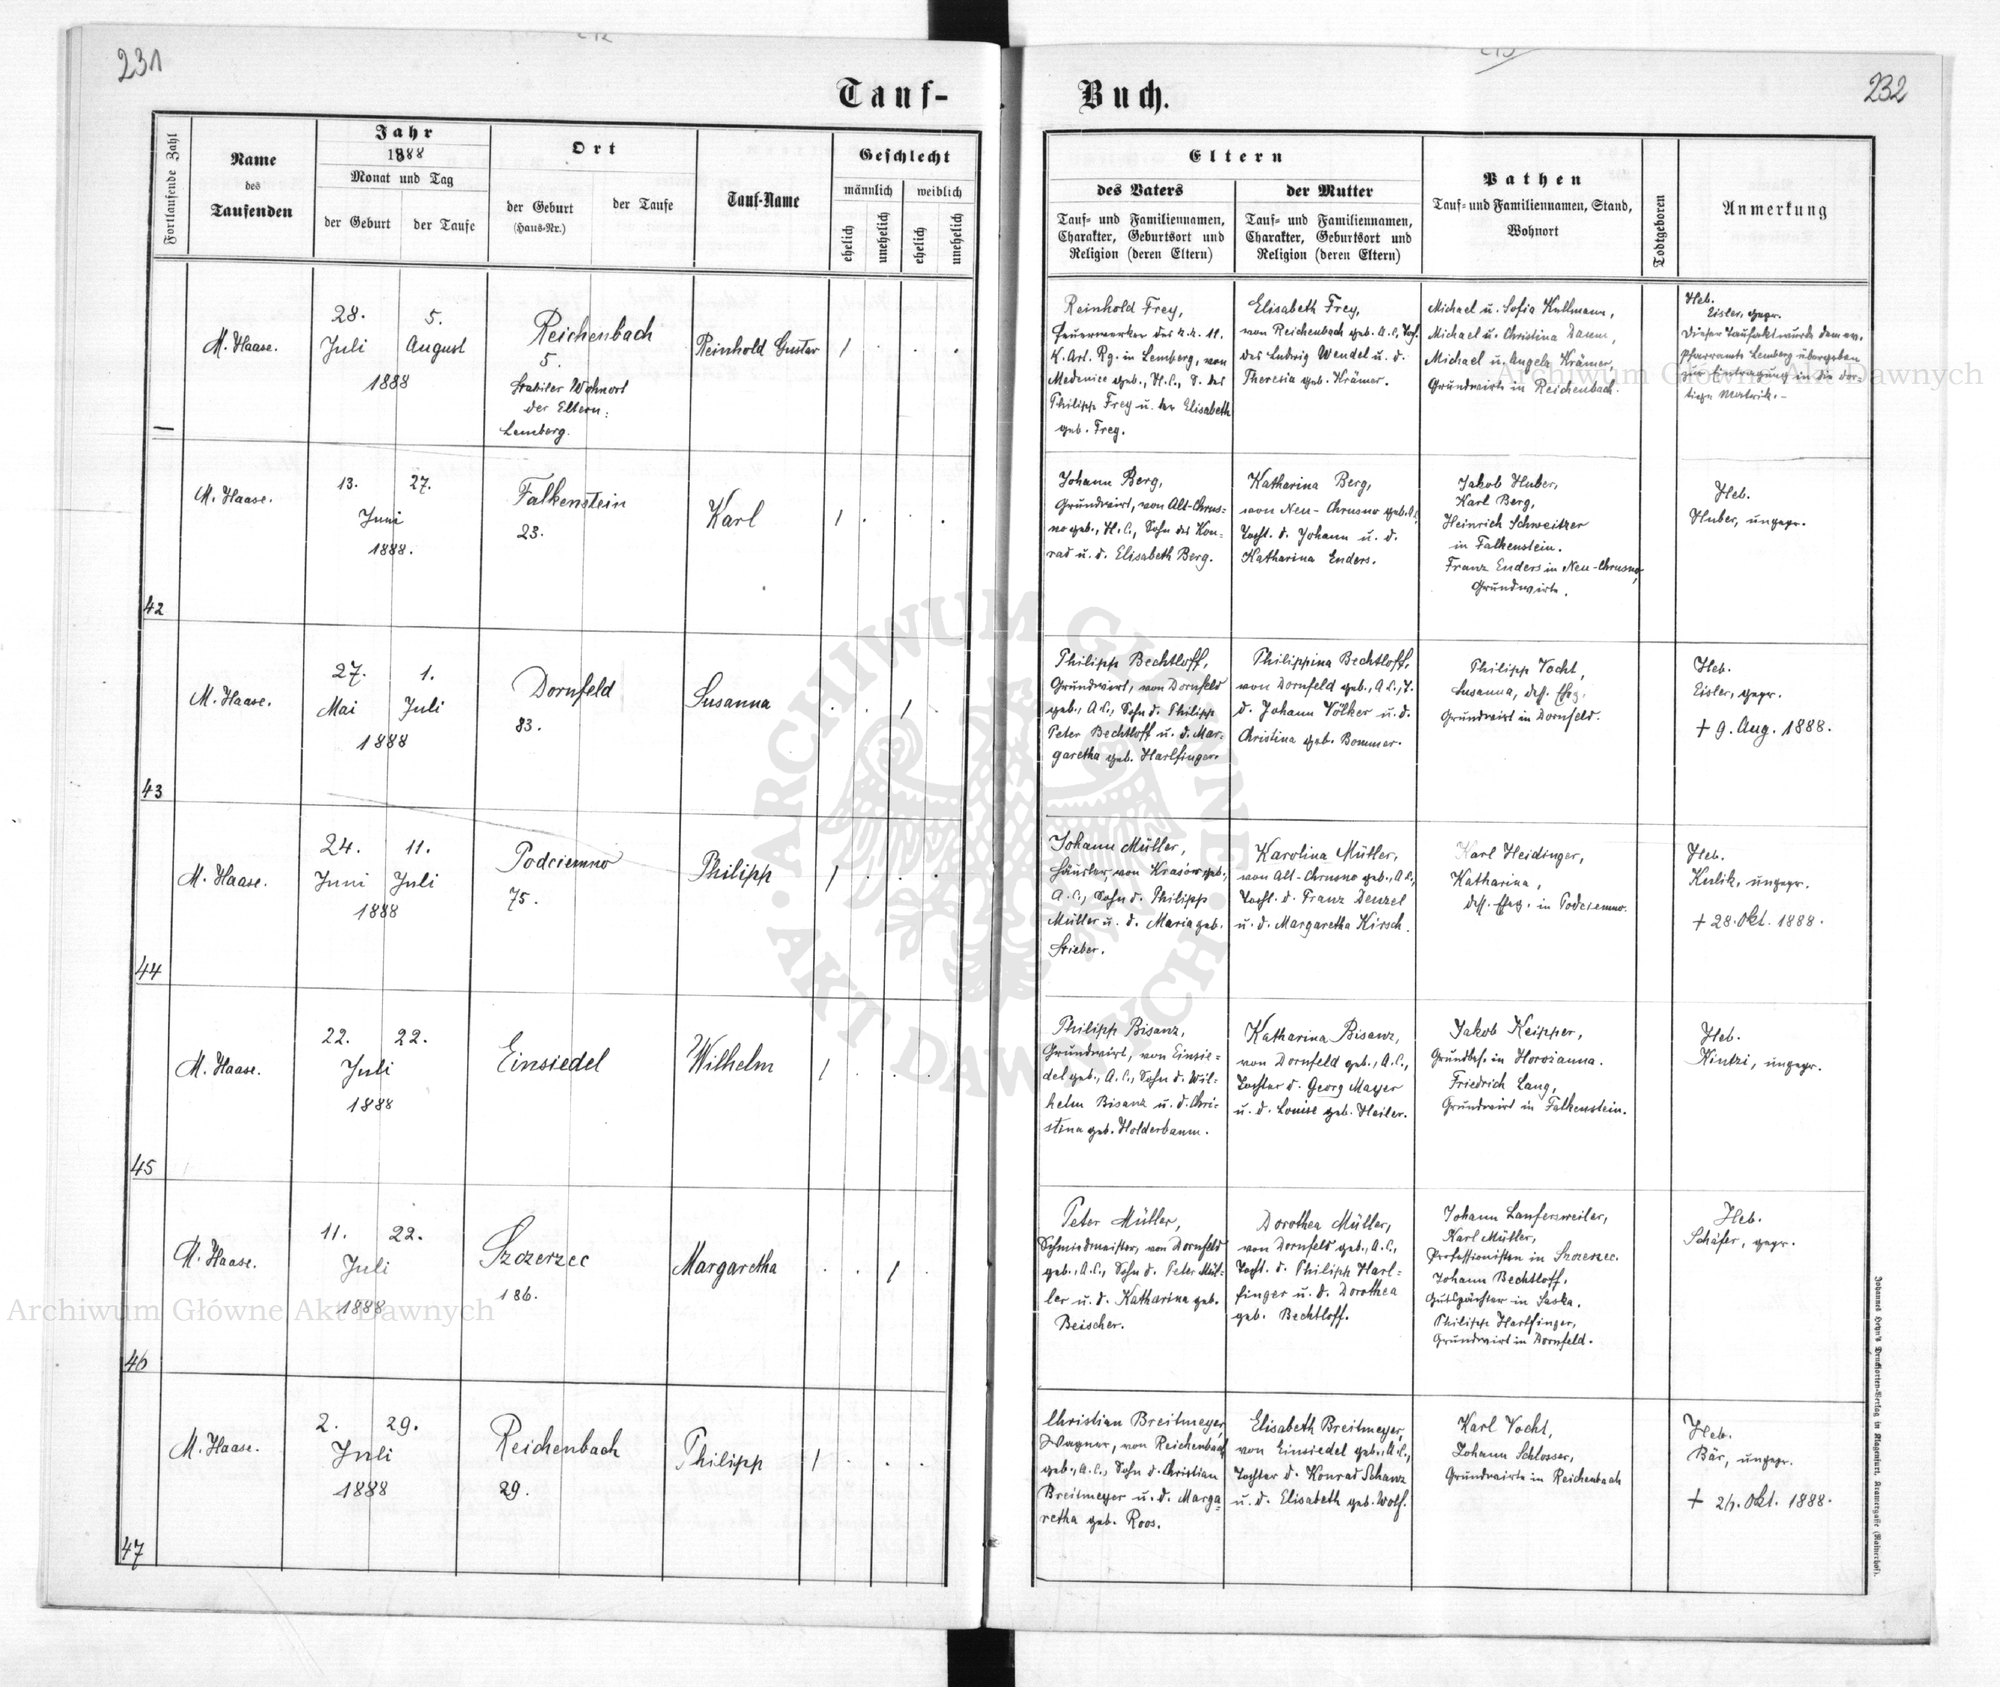 231
232
Tauf-
Buch.
Fortlaufende Zahl
Name
des
Taufenden
Jahr
1888
Monat und Tag
der Geburt
der Taufe
Ort
der Geburt
(Haus-Nr.)
der Taufe
Tauf-Name
Geschlecht
männlich
weiblich
ehelich
unehelich
ehelich
unehelich
Eltern
des Vaters
Tauf- und Familiennamen,
Charakter, Geburtsort und
Religion (deren Eltern)
der Mutter
Tauf- und Familiennamen,
Charakter, Geburtsort und
Religion (deren Eltern)
Pathen
Tauf- und Familiennamen, Stand,
Wohnort
Todtgeboren
Anmerkung
—
M. Haase.
28. 5.
Juli August
1888
Reichenbach
5.
Stabiler Wohnort
der Eltern:
Lemberg.
Reinhold Gustav
1 . . .
Reinhold Frey,
Feuerwerker des k. k. 11.
K. Art. Rg. in Lemberg, von
Medenice geb., H.C., S. des
Philipp Frey u. der Elisabeth
geb. Frey.
Elisabeth Frey,
von Reichenbach geb. A.C., Tocht.
des Ludwig Wendel u. d.
Theresia geb. Krämer.
Michael u. Sofia Kullmann,
Michael u. Christina Daum,
Michael u. Angela Krämer,
Grundwirte in Reichenbach.
Heb.
Eisler, gepr.
Dieser Taufakt wurde dem ev.
Pfarramte Lemberg übergeben
zur Eintragung in die dor-
tige Matrik. -
42
M. Haase.
13. 27.
Juni
1888.
Falkenstein
23.
Karl
1 . . .
Johann Berg,
Grundwirt, von Alt-Chrus-
no geb., H.C., Sohn des Kon-
rad u. d. Elisabeth Berg.
Katharina Berg,
von Neu-Chrusno geb. A.C.,
Tocht. d. Johann u. d.
Katharina Enders.
Jakob Huber,
Karl Berg,
Heinrich Schweitzer
in Falkenstein.
Franz Enders in Neu-Chrusno,
Grundwirte.
Heb.
Huber, ungepr.
43
M. Haase.
27. 1.
Mai Juli
1888
Dornfeld
83.
Susanna
. . 1 .
Philipp Bechtloff,
Grundwirt, von Dornfeld
geb., A.C., Sohn d. Philipp
Peter Bechtloff u. d. Mar-
garetha geb. Harlfinger.
Philippina Bechtloff,
von Dornfeld geb., A.C., T.
d. Johann Völker u. d.
Christina geb. Bommer.
Philipp Vocht,
Susanna, dess. Eheg.
Grundwirt in Dornfeld.
Heb.
Eisler, gepr.
+ 9. Aug. 1888.
44
M. Haase.
24. 11.
Juni Juli
1888
Podciemno
75.
Philipp
1 . . .
Johann Müller,
Häusler, von Krasów geb.,
A.C., Sohn d. Philipp
Müller u. d. Maria geb.
Stieber.
Karolina Müller,
von Alt-Chrusno geb., A.C.,
Tocht. d. Franz Denzel
u. d. Margaretha Kirsch.
Karl Heidinger,
Katharina,
dess. Eheg. in Podciemno.
Heb.
Kulik, ungepr.
+ 28. Okt. 1888.
45
M. Haase.
22. 22.
Juli
1888
Einsiedel
Wilhelm
1 . . .
Philipp Bisanz,
Grundwirt, von Einsie-
del geb., A.C., Sohn d. Wil-
helm Bisanz u. d. Chri-
stina geb. Holderbaum.
Katharina Bisanz,
von Dornfeld geb., A.C.,
Tochter d. Georg Mayer
u. d. Louise geb. Hailer.
Jakob Keipper,
Grundbes. in Horożanna.
Friedrich Lang,
Grundwirt in Falkenstein.
Heb.
Kintzi, ungepr.
46
M. Haase.
11. 22.
Juli
1888
Szczerzec
186.
Margaretha
. . 1 .
Peter Müller,
Schmiedmeister, von Dornfeld
geb., A.C., Sohn d. Peter Mül-
ler u. d. Katharina geb.
Beischer.
Dorothea Müller,
von Dornfeld geb., A.C.,
Tocht. d. Philipp Harl-
finger u. d. Dorothea
geb. Bechtloff.
Johann Laufersweiler,
Karl Müller,
Professionisten in Szczerzec.
Johann Bechtloff,
Gutspächter in Saska.
Philipp Harlfinger,
Grundwirt in Dornfeld.
Heb.
Schäfer, gepr.
47
M. Haase.
2. 29.
Juli
1888
Reichenbach
29.
Philipp
1 . . .
Christian Breitmeyer,
Wagner, von Reichenbach
geb., A.C., Sohn d. Christian
Breitmeyer u. d. Marga-
retha geb. Roos.
Elisabeth Breitmeyer,
von Einsiedel geb., A.C.,
Tochter d. Konrad Schanz
u. d. Elisabeth geb. Wolf.
Karl Vocht,
Johann Schlosser,
Grundwirte in Reichenbach
Heb.
Bär, ungepr.
+ 26. Okt. 1888.
Johannes Heyn's Drucksorten-Verlag in Klagenfurt, Kramergasse (Rainerhof).
Archiwum Główne Akt Dawnych
Archiwum Główne Akt Dawnych
ARCHIWUM GŁÓWNE AKT DAWNYCH